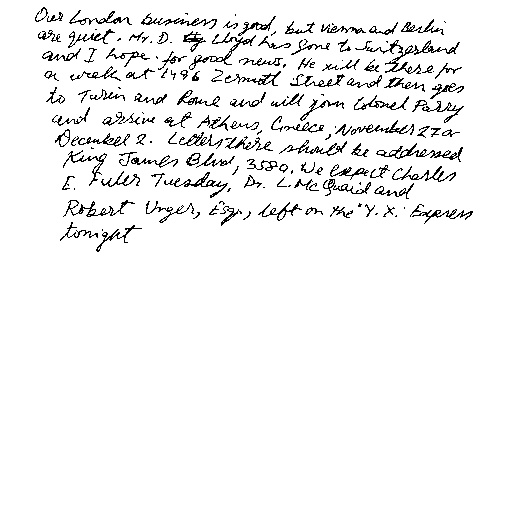 Our London business is good, but Vienna and Berlin
are quiet. Mr. D. Lloyd has gone to Switzerland
and I hope for good news. He will be there for
a week at 1496 Zermott Street and then goes
to Turin and Rome and will join Colonel Parry
and arrive at Athens, Greece, November 27 or
December 2. Letters there should be addressed
King James Blvd, 3580. We expect Charles
E. Fuller Tuesday. Dr. L. McQuaid and
Robert Unger, Esq., left on the "Y. X." Express
tonight